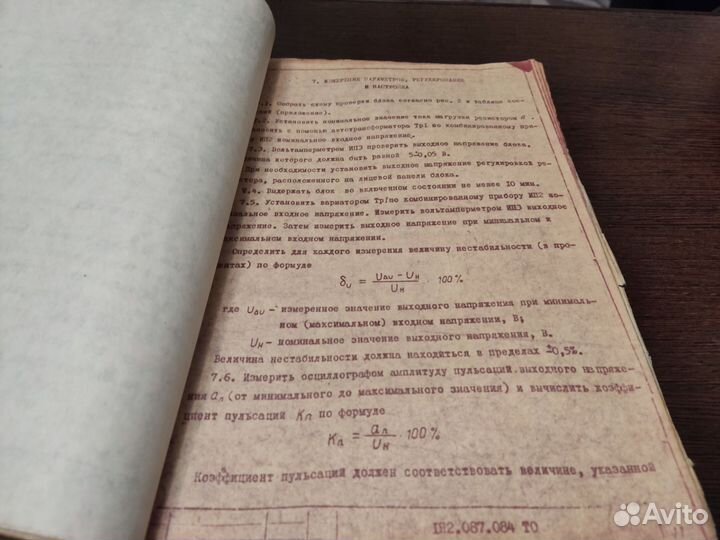 7. ИЗМЕРЕНИЕ ПАРАМЕТРОВ, РЕГУЛИРОВАНИЕ
И НАСТРОЙКА
.1. Собрать схему проверки блока согласно рис. 2 и таблице
(приложение).
.2. Установить номинальное значение тока нагрузки резистором
с помощью автотрансформатора Тр1 по комбинированному
ИП2 номинальное входное напряжение.
.3. Вольтамперметром ИП3 проверить выходное напряжение блока,
величина которого должна быть равной 5±0,05 В.
При необходимости установить выходное напряжение регулировкой ре-
тора, расположенного на лицевой панели блока.
7.4. Выдержать блок во включенном состоянии не менее 10 мин.
7.5. Установить вариатором Тр1 по комбинированному прибору ИП2 но-
минальное входное напряжение. Измерить вольтамперметром ИП3 выходное
напряжение. Затем измерить выходное напряжение при минимальном и
максимальном входном напряжении.
Определить для каждого измерения величину нестабильности (в про-
центах) по формуле
δu = (Uди - Uн) / Uн · 100%
где Uди - измеренное значение выходного напряжения при минималь-
ном (максимальном) входном напряжении, В;
Uн - номинальное значение выходного напряжения, В.
Величина нестабильности должна находиться в пределах ±0,5%.
7.6. Измерить осциллографом амплитуду пульсаций выходного напряже-
ния aп (от минимального до максимального значения) и вычислить коэффи-
циент пульсаций Kп по формуле
Kп = aп / Uн · 100%
Коэффициент пульсаций должен соответствовать величине, указанной
2.087.084 ТО
Avito